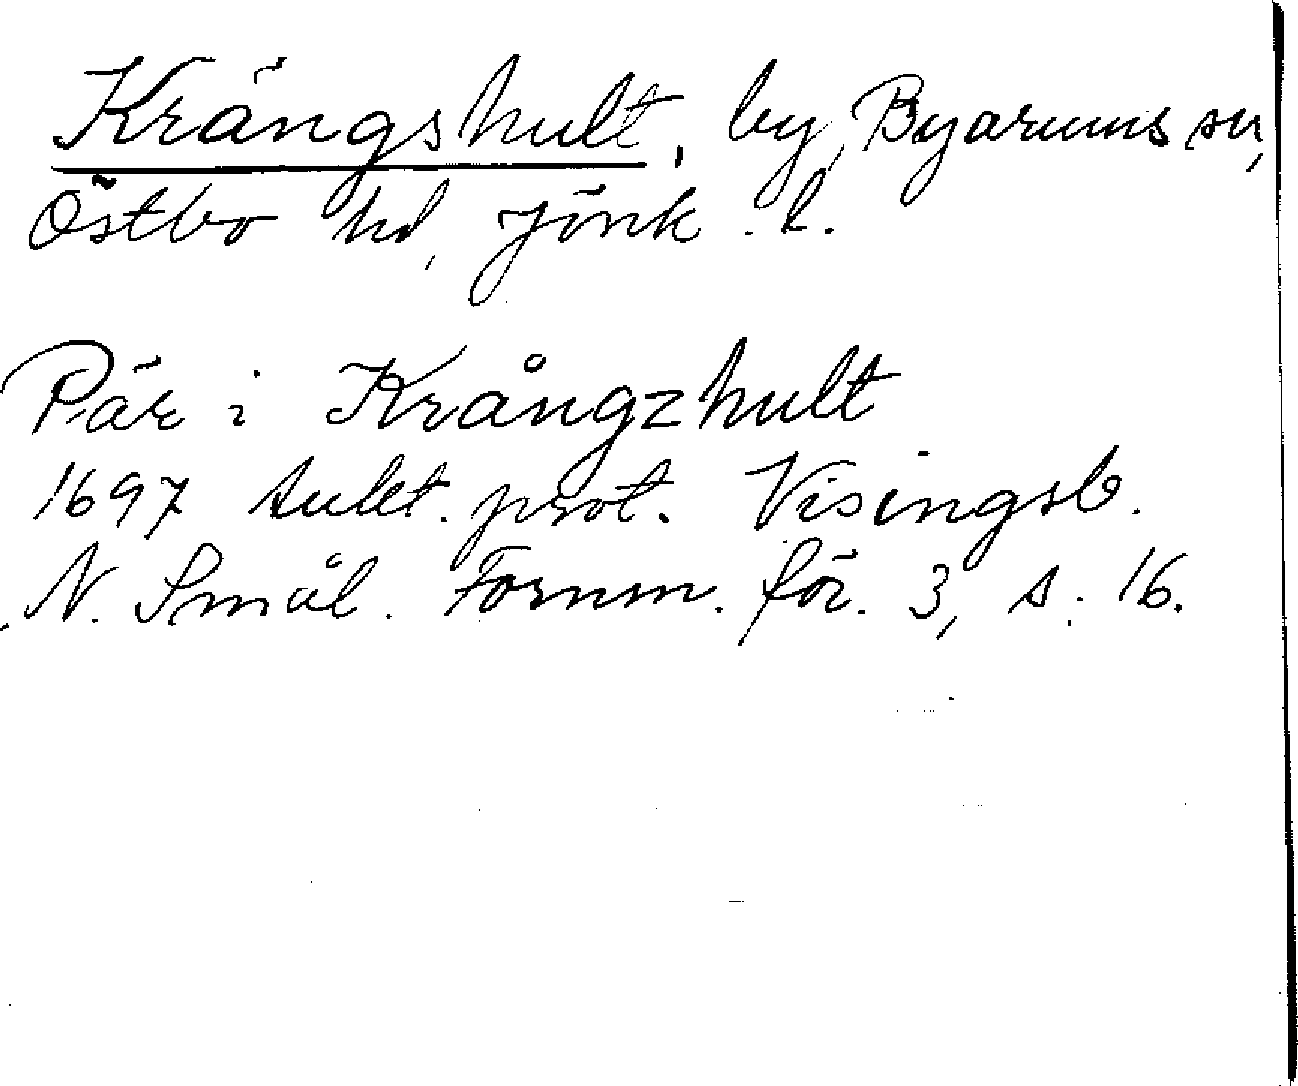 Krängshult, by, Byarums sn,
Östbo hd, Jönk. l.
Pär i Krångzhult
1697 Aukt. prot. Visingsb.
N. Smål. Fornm. för. 3, s. 16.